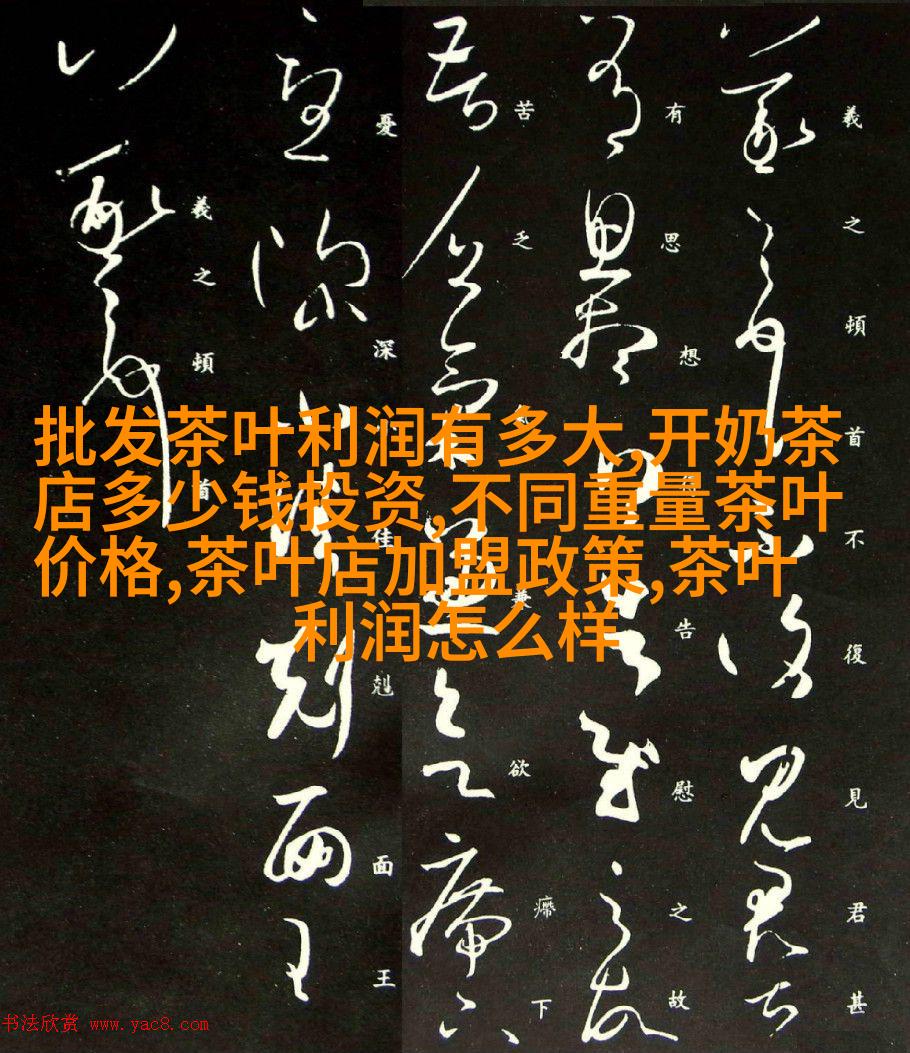 批发茶叶利润有多大,开奶茶
店多少钱投资,不同重量茶叶
价格,茶叶店加盟政策,茶叶
利润怎么样
羲之頓首不復見君甚
有思想告慰之故
苦乏兼欲㿃下
憂深佳尅面王
羲之頓首
书法欣赏 www.yac8.com